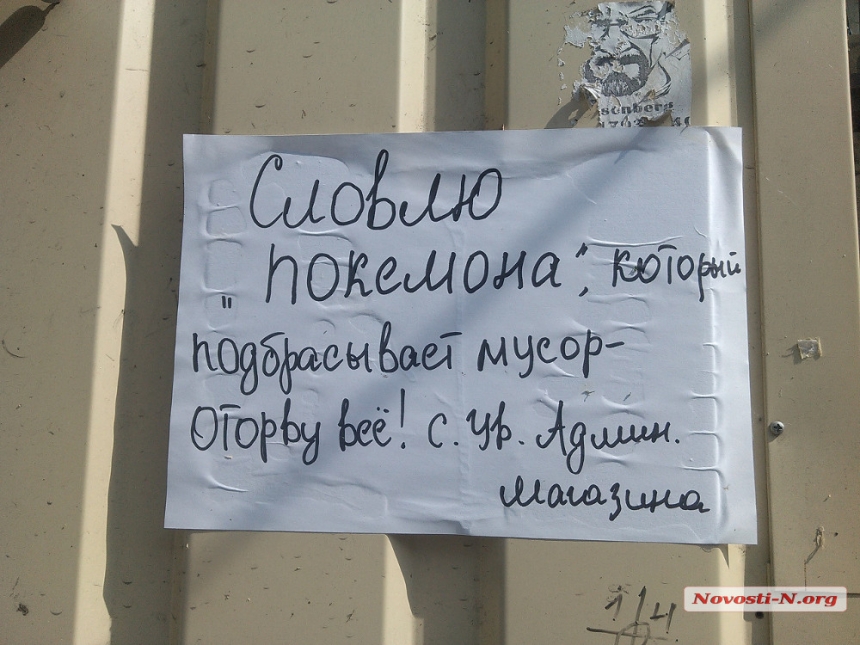 senberg
Словлю
„покемона“, который
подбрасывает мусор-
Оторву всё! с. ур. Админ.
магазина
1/4
Novosti-N.org